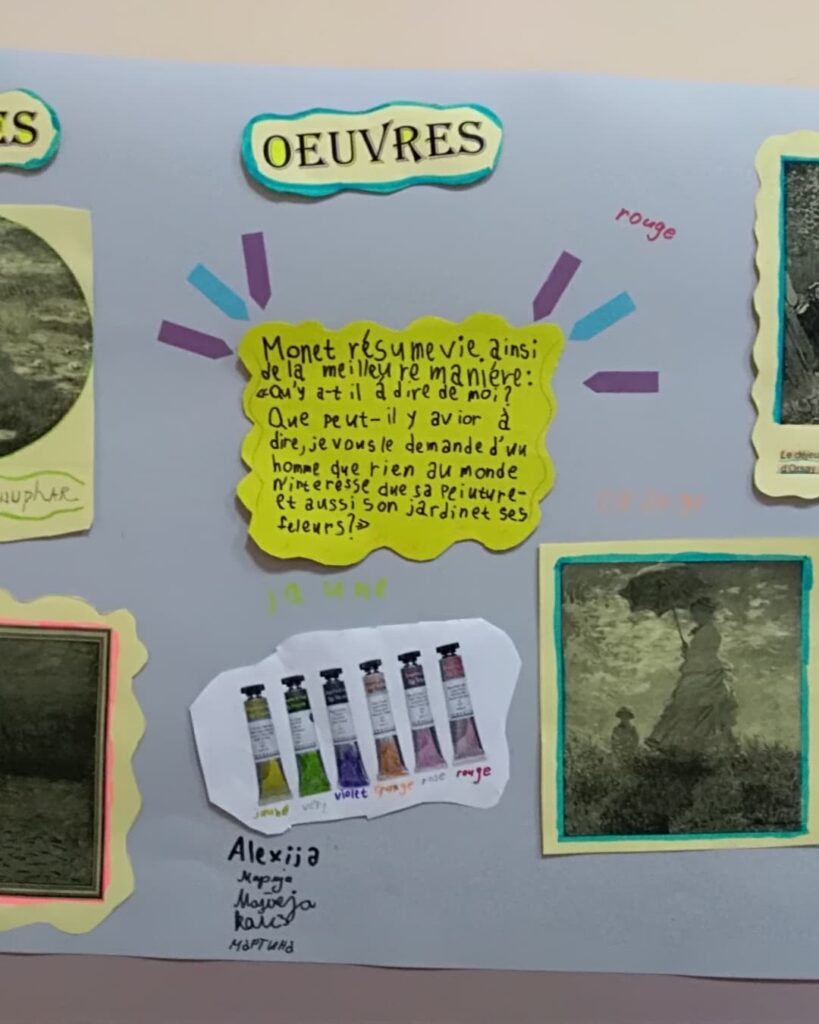 ES
OEUVRES
rouge
Monet résume vie ainsi
de la meilleure maniére:
«Qu'y a-t il à dire de moi?
Que peut-il y avior à
dire, je vous le demande d'un
homme que rien au monde
n'interesse que sa peiuture-
et aussi son jardin et ses
feleurs?»
Le déjeu
d'Orsay
NUPHAR
orange
jaune
jaune
vert
violet
orange
rose
rouge
Alexija
Марија
Матеја
МАРТИНА